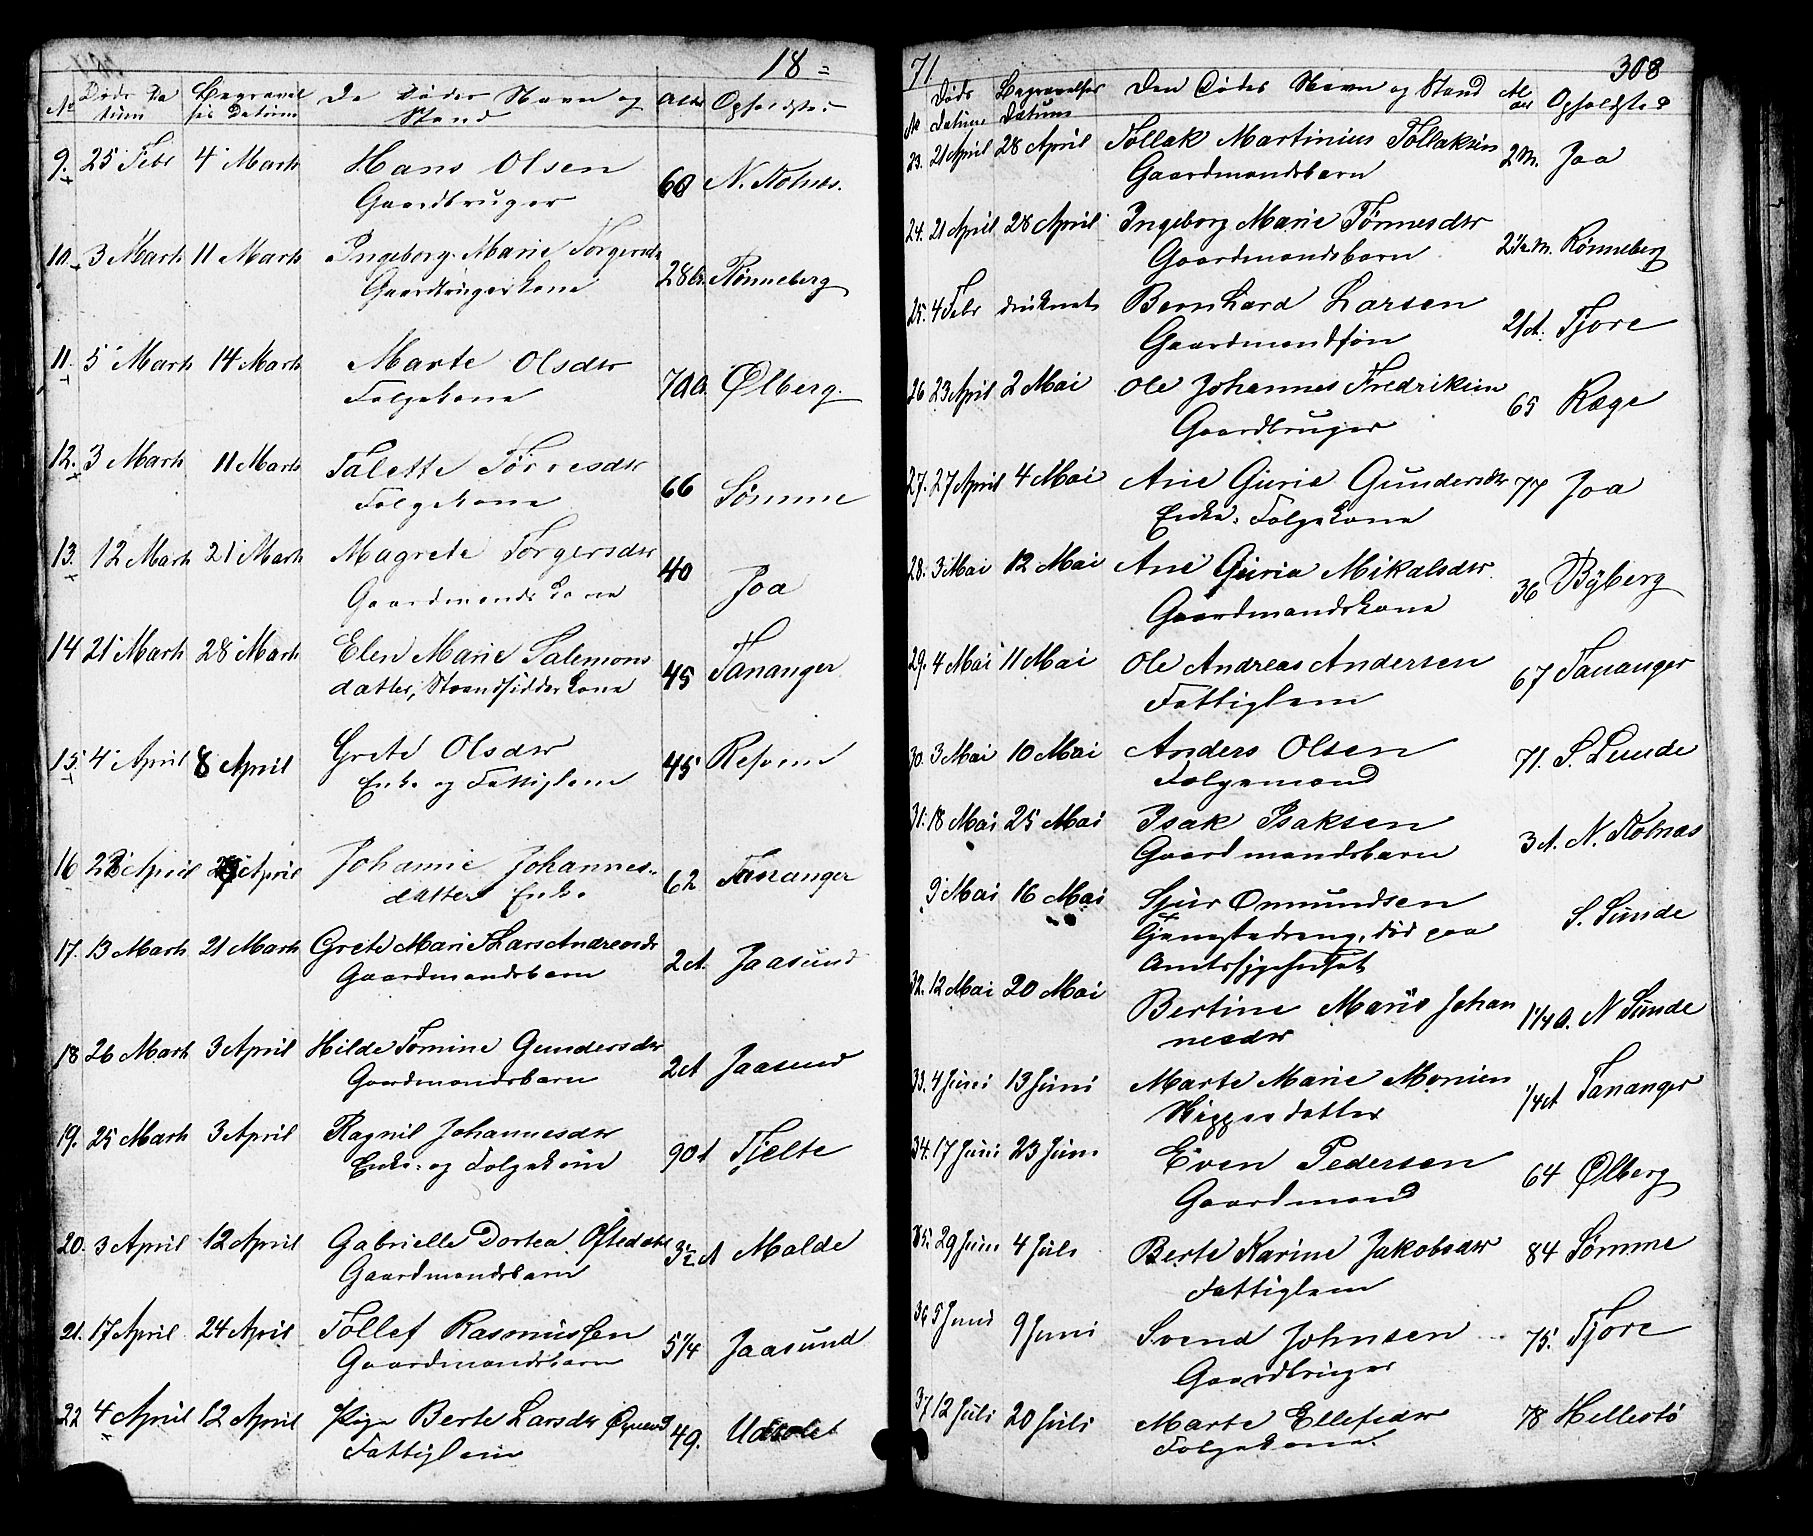 18 =
No Døds Datum Begravelses Datum De Dødes Navn og Stand Alder Opholdsted
9. 25 Febr 4 Marts Hans Olsen 60 N. Kolnes.
Gaardbruger
10. 3 Marts 11 Marts Ingeborg Marie Torgersdtr 28 Rønneberg
Gaardbrugerkone
11. 5 Marts 14 Marts Marte Olsdtr 70 Ølberg
Folgekone
12. 3 Marts 11 Marts Talette Tørresdtr 66 Sømme
Folgekone
13. 12 Marts 21 Marts Magrete Torgersdtr 40 Joa
Gaardmandskone
14 21 Marts 28 Marts Elen Marie Salemons 45 Tananger
datter, Strandsidderkone
15. 4 April 8 April Grete Olsdtr 45 Refsnes
Enke og Fattiglem
16 April April Johanne Johannes- 62 Tananger
datter Enke
17. 13 Marts 21 Marts Grete Marie Lars Andreasdtr 2 A. Jaasund
Gaardmandsbarn
18 26 Marts 3 April Hilde Tomine Gundersdtr 2 A Jaasund
Gaardmandsbarn
19. 25 Marts 3 April Ragnil Johannesdtr 90 A Tjelte
Enke og Folgekone
20. 3 April 12 April Gabrielle Dortea 3 1/2 A Malde
Gaardmandsbarn
21. 17 April 24 April Tollef Rasmussen 5 1/4 Jaasund
Gaardmandsbarn
22 4 April 12 April Pige Berte Larsdtr 49. Udsolet
Fattiglem
71 308
No Døds Datum Begravelses Datum Den Dødes Navn og Stand Alder Opholdsted
23. 21 April 28 April Tollak Martinius Tollaksen 2 M. Joa
Gaardmandsbarn
24. 21 April 28 April Ingeborg Marie Tønnesdtr 2 1/2 M. Rønneberg
Gaardmandsbarn
25. 4 Febr druknet Bernhard Larsen 21 A. Tjore
Gaardmandssøn
26 23 April 2 Mai Ole Johannes Fredriksen 65 Ræge
Gaardbruger
27. 27 April 4 Mai Ane Gurie Gundersdtr 77 Joa
Enke. Folgekone
28. 3 Mai 12 Mai Ane Guria Mikalsdtr. 36 Byberg
Gaardmandskone
29. 4 Mai 11 Mai Ole Andreas Andersen 67 Tananger
Fattiglem
30. 3 Mai 10 Mai Anders Olsen 71. S. Sunde
Folgemand
31. 18 Mai 25 Mai Isak Isaksen 3 A. N. Kolnes
Gaardmandsbarn
9 Mai 16 Mai Sjur Omundsen S. Sunde
Tjenestedreng, død paa
Amtssygehuset
32. 12 Mai 20 Mai Bertine Marie Johan 1 1/4 A. N Sunde
nesdtr
33. 4 Juni 13 Juni Marte Marie Monsen 1/4 A Tananger
datter
34. 17 Juni 23 Juni Even Pedersen 64 Ølberg
Gaardmand
35. 29 Juni 4 Juli Berte Karine Jakobsdtr 84 Sømme
Fattiglem
36 5 Juni 9 Juni Svend Johnsen 75. Tjore
Gaardbruger
37. 12 Juli 20 Juli Marte Ellefsdtr 78 Hellestø
Folgekone.